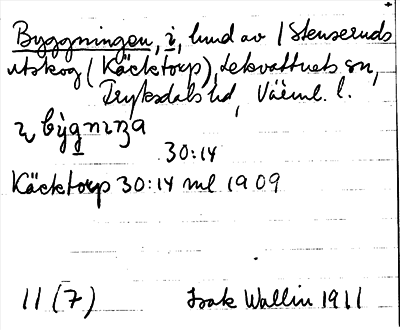 Byggningen, i, lund av / Stenseruds
utskog (Käcktorp), Lekvattnets sn,
Fryksdals hd, Värml. l.
30:14
Käcktorp 30:14 ml 1909
11 (7) Isak Wallin 1911